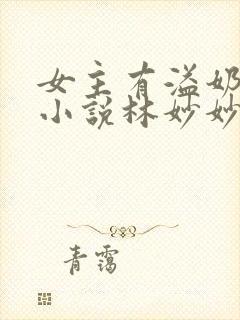 女主有溢奶
小说林妙妙
青霭